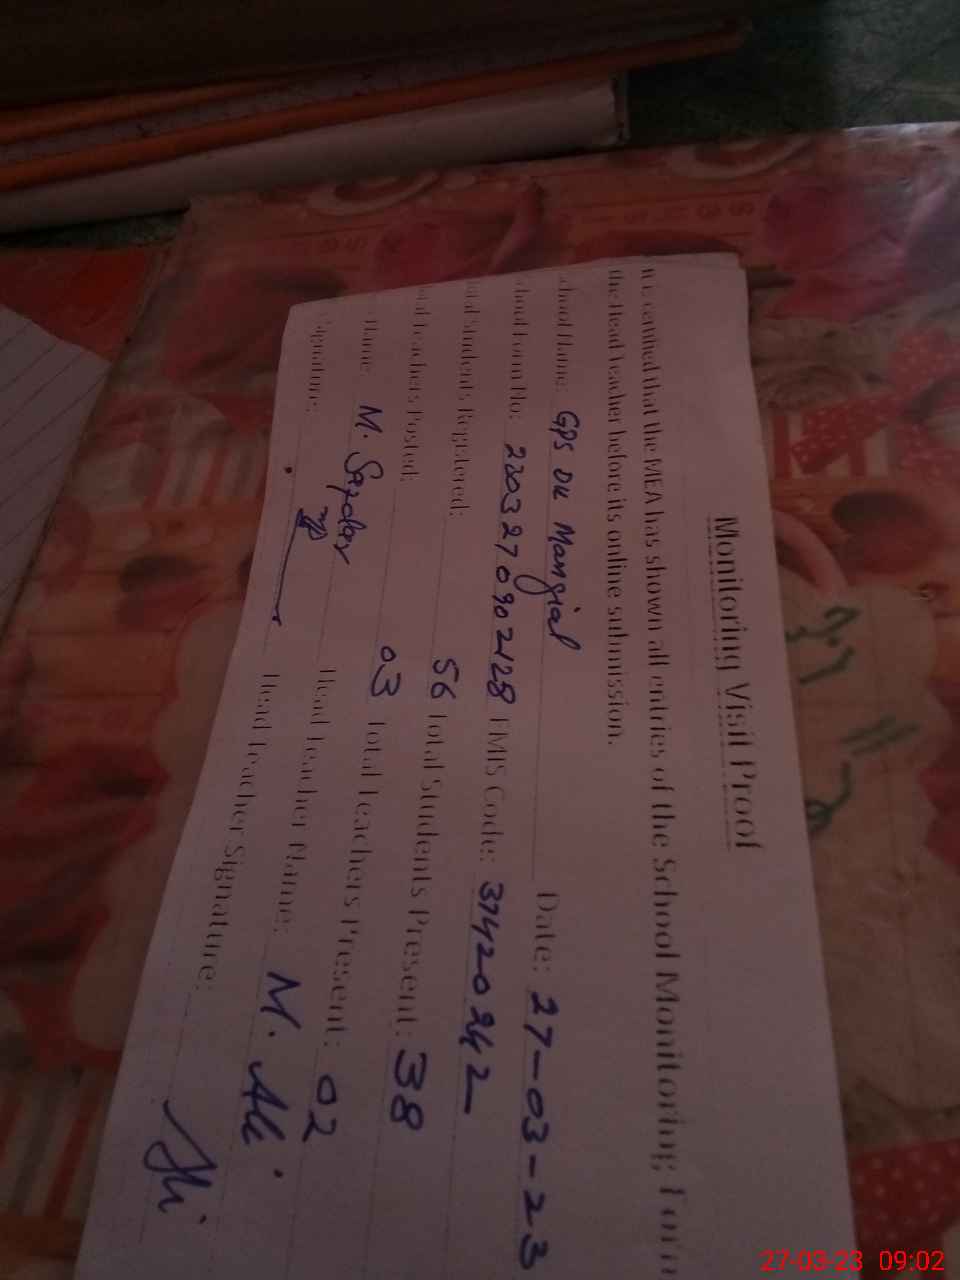 Monitoring Visit Proof
It is certified that the MEA has shown all entries of the School Monitoring Form
the Head Teacher before its online submission.
School Name: GPS Dk Mangial Date: 27-03-23
School Form No: 2203270902128 EMIS Code: 37420242
Total Students Registered: 56 Total Students Present: 38
Total Teachers Posted: 03 Total Teachers Present: 02
Name: M. Head Teacher Name: M. Ali
Signature: Head Teacher Signature:
27-03-23 09:02